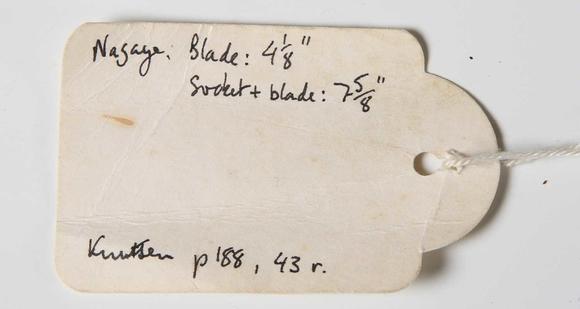 Nagaye. Blade: 4 1/8"
Socket + blade: 7 5/8"
Knutsen p188, 43 r.